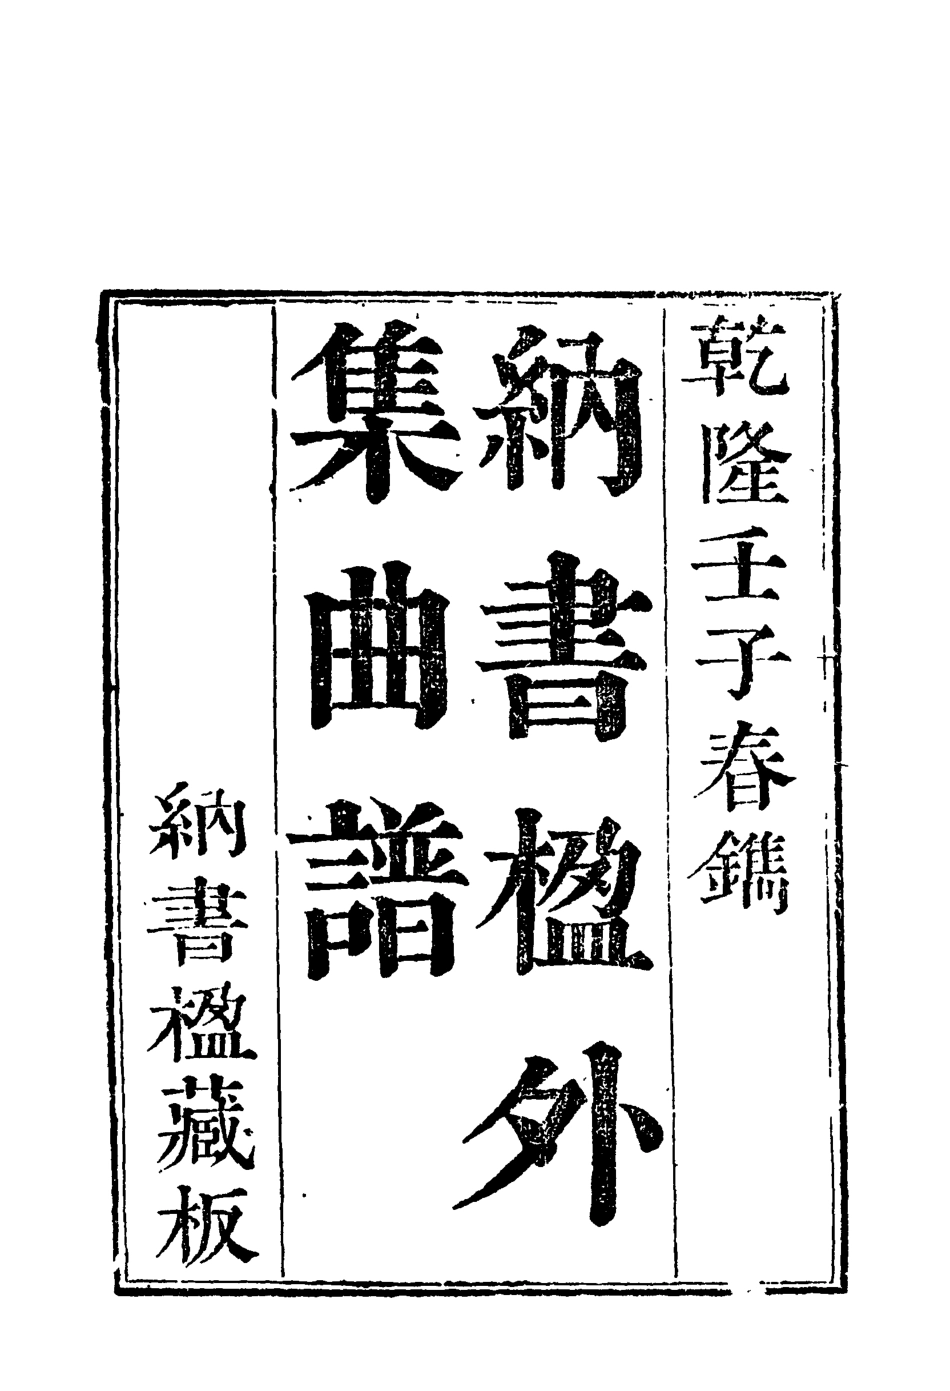 乾隆壬子春鐫
納書楹外
集曲譜
納書楹藏板